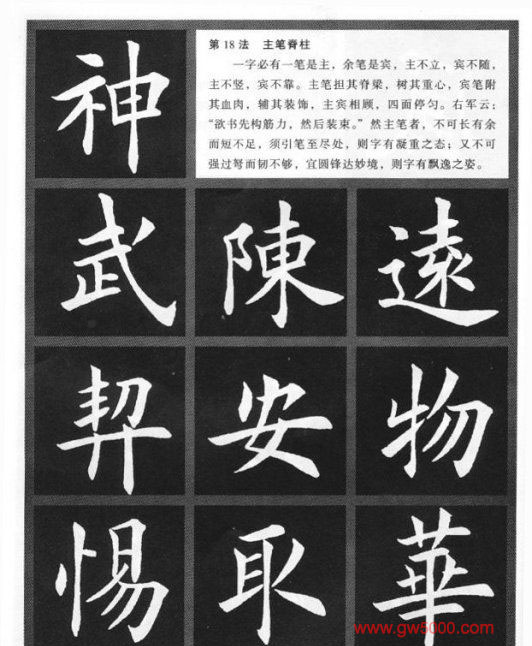 神
第18法 主笔脊柱
一字必有一笔是主，余笔是宾，主不立，宾不随，
主不竖，宾不靠。主笔担其脊梁，树其重心，宾笔附
其血肉，辅其装饰，主宾相顾，四面停匀。右军云：
“欲书先构筋力，然后装束。”然主笔者，不可长有余
而短不足，须引笔至尽处，则字有凝重之态；又不可
强过弩而韧不够，宜圆锋达妙境，则字有飘逸之姿。
武 陳 遠
契 安 物
惕 取 華
www.gw5000.com